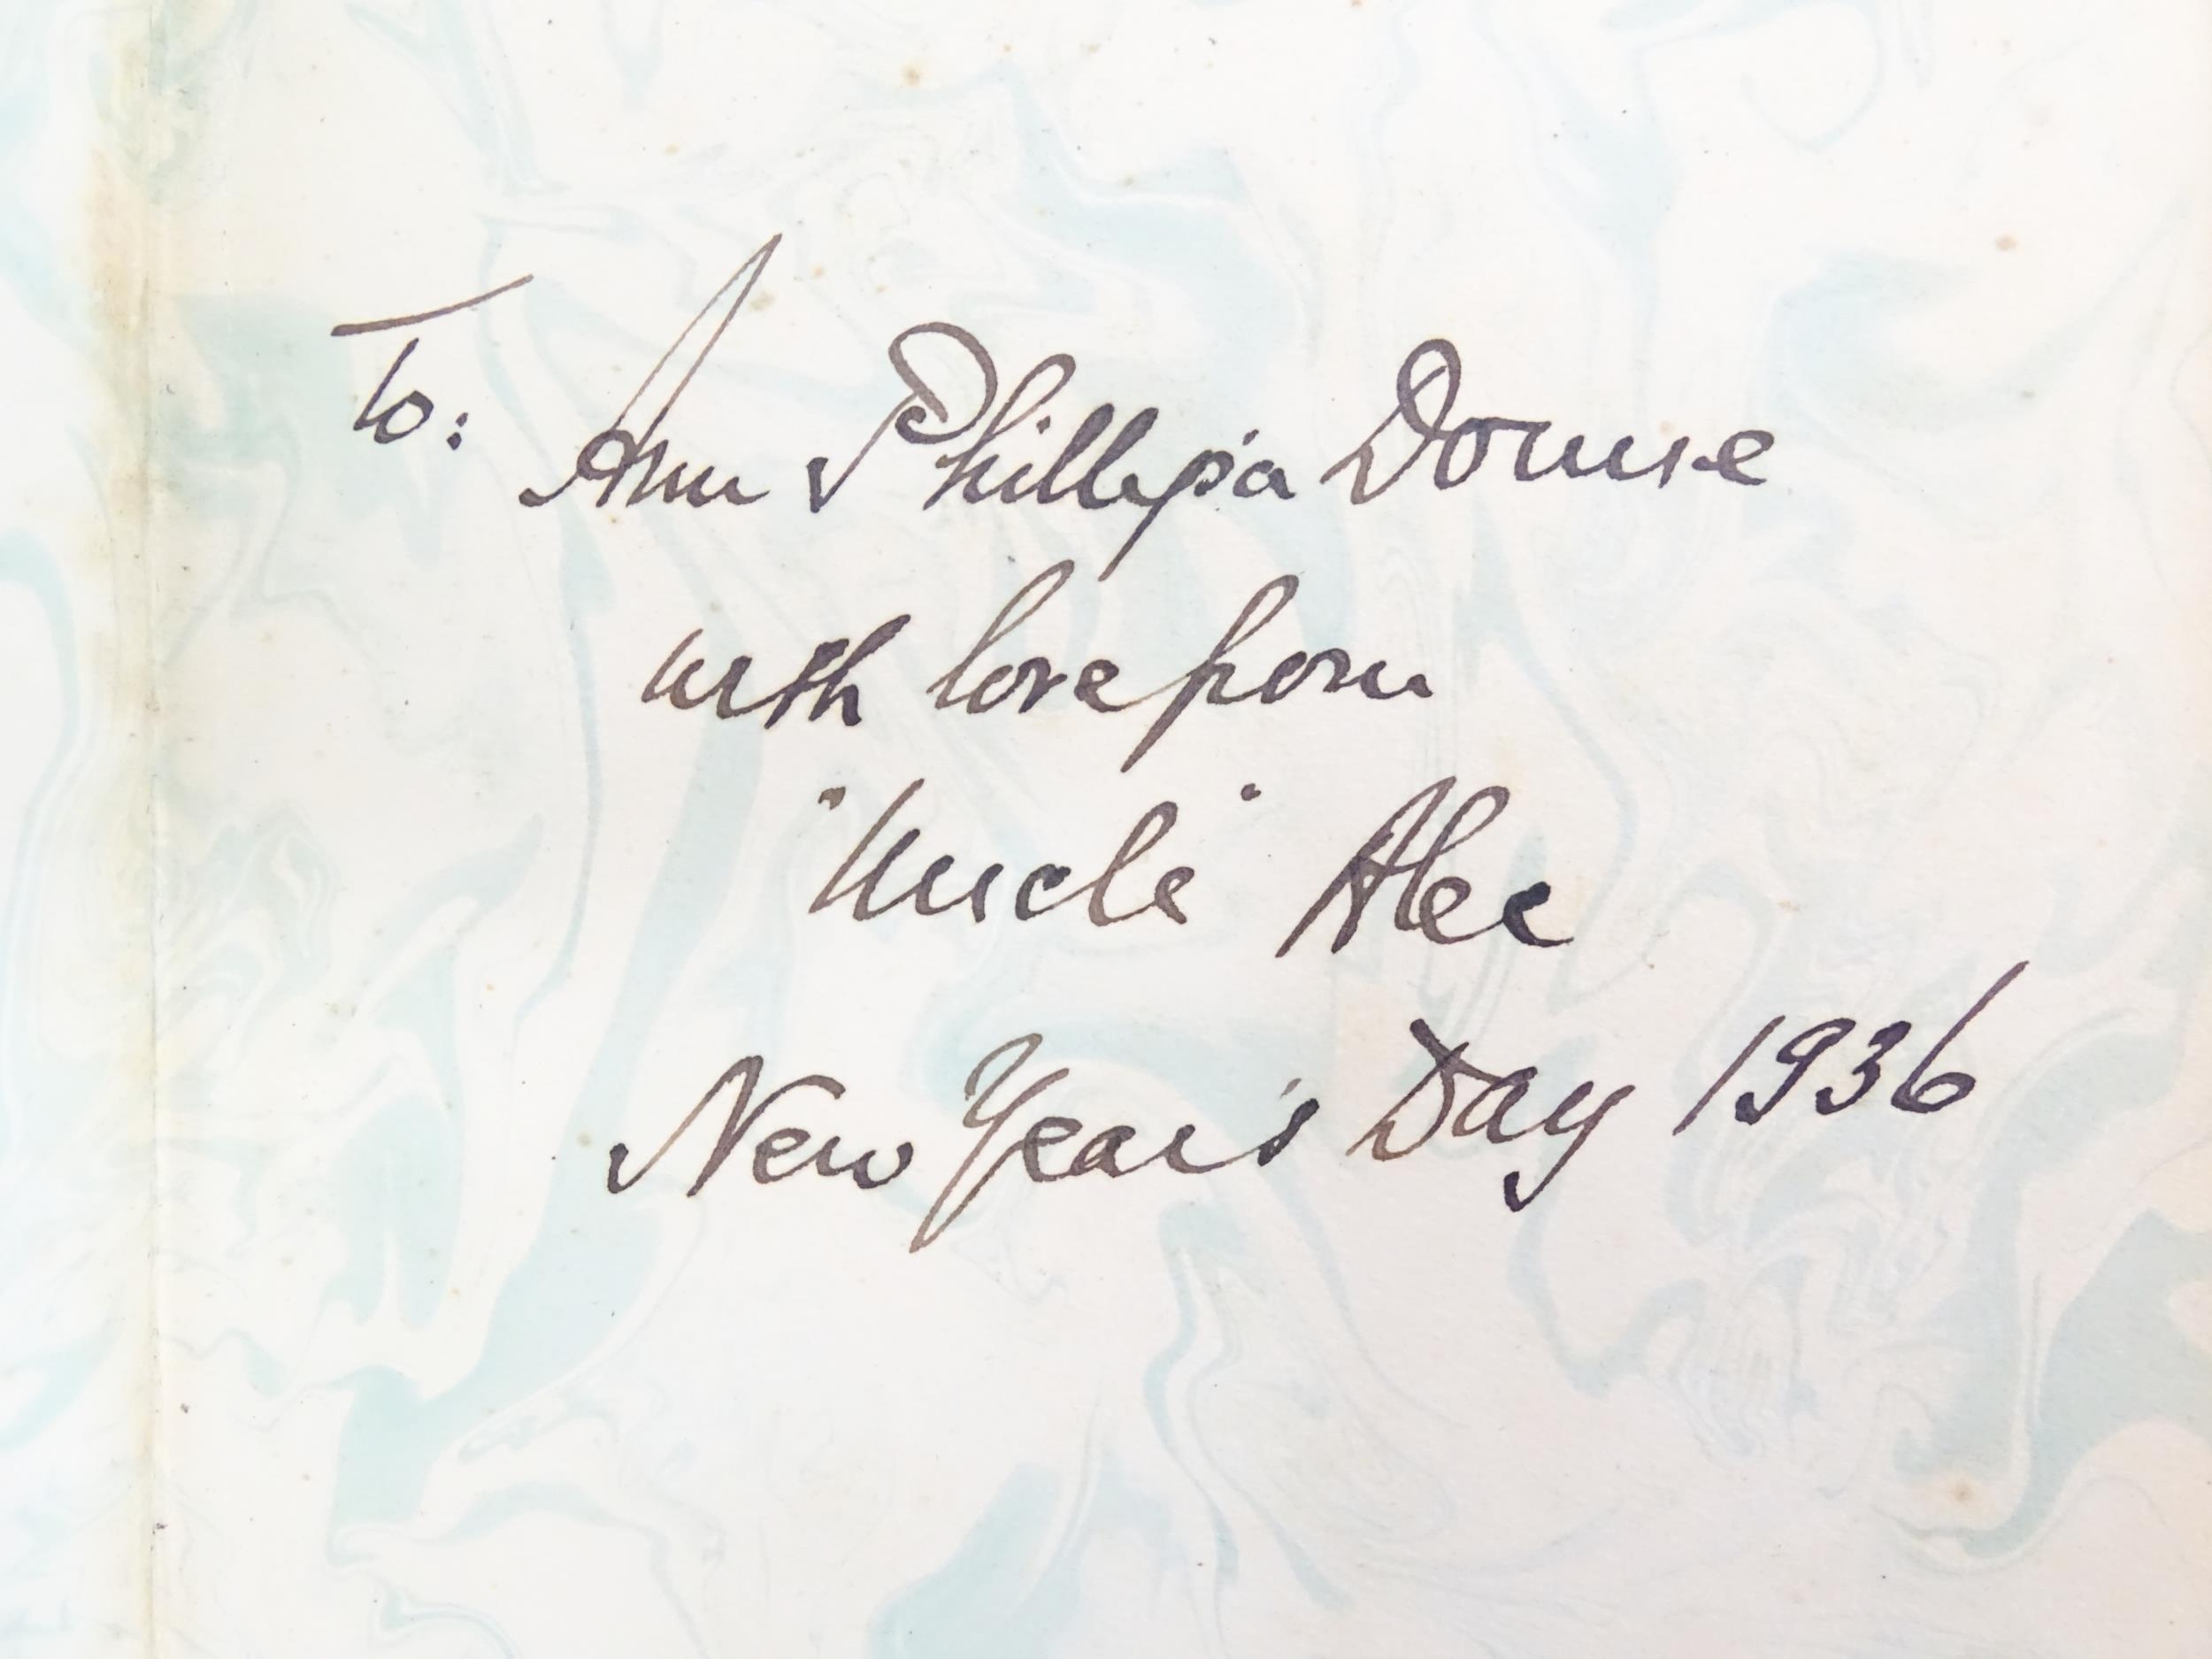 To: Ann Phillipia
with love from
"Uncle" Alec
New Year's Day 1936